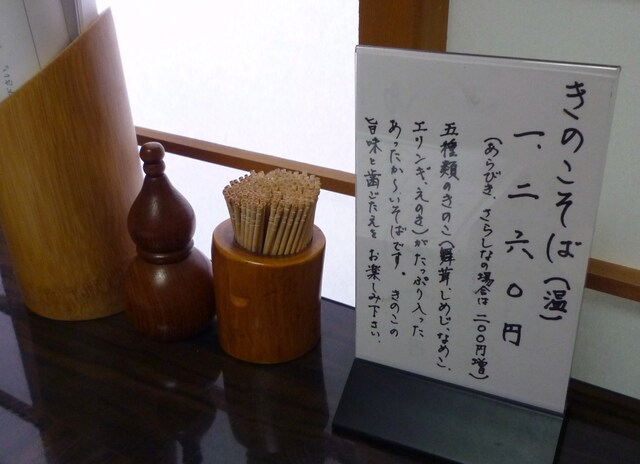 きのこそば(温)
一、二六〇円
(あらびき、さらしなの場合は二〇〇円増)
五種類のきのこ(舞茸、しめじ、なめこ、
エリンギ、えのき)がたっぷり入った
あったか〜いそばです。きのこの
旨味と歯ごたえを お楽しみ下さい。